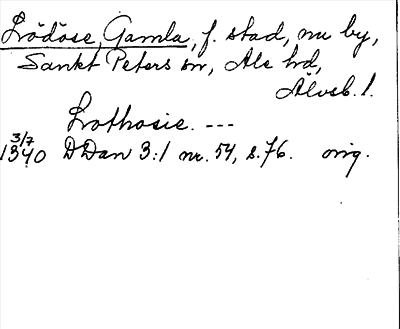 Lödöse, Gamla, f. stad, nu by,
Sankt Peters sn, Ale hd,
Älvsb. l.
Lothosie. ---
3/7
1340 DDan 3:1 nr. 54, s. 76. orig.